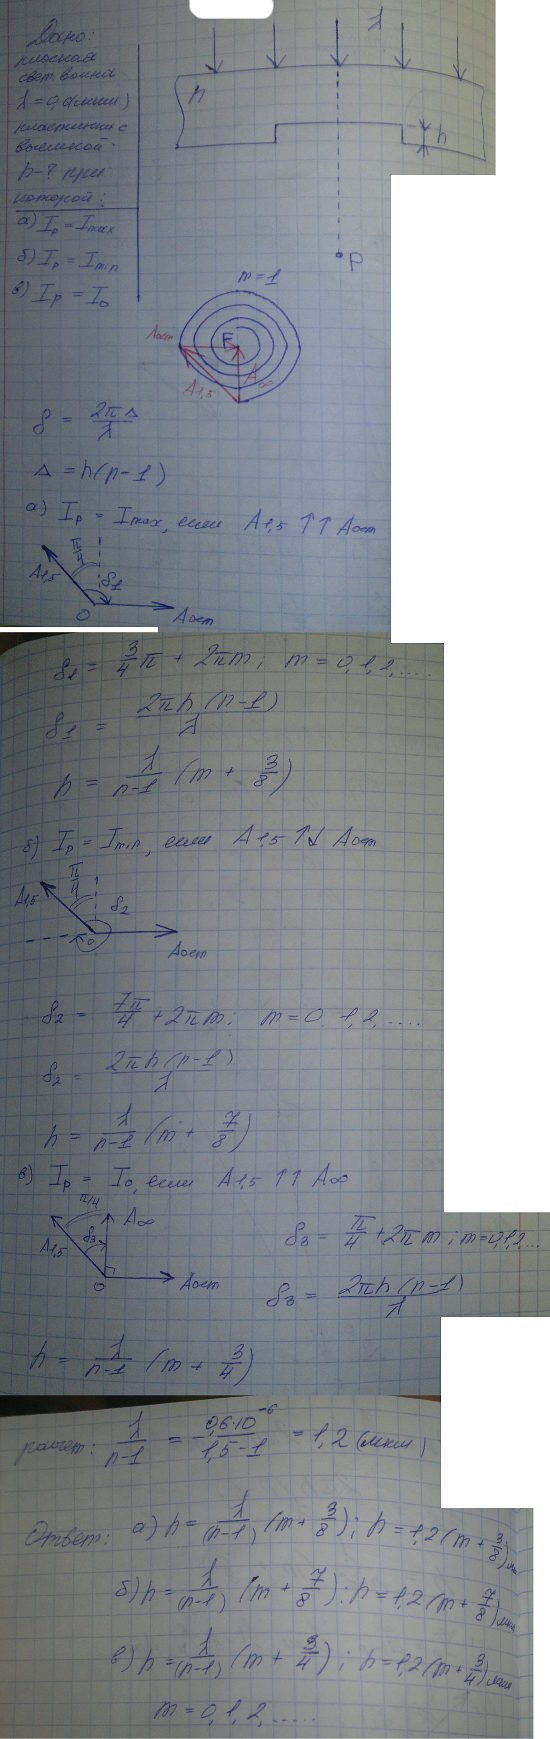 Дано:
плоская
свет. волна
λ = 0,6(мкм)
пластинка с
выемкой.
h-? при
которой:
а) Iр = Imax
б) Iр = Imin
в) Iр = I₀
λ
n
h
P
m=1
Aост
F
A∞
A1,5
δ = 2πΔ/λ
Δ = h(n-1)
а) Iр = Imax, если A1,5 ↑↑ Aост
A1,5
π/4
δ1
O
Aост
δ1 = 3/4 π + 2πm; m = 0,1,2,....
δ1 = 2πh(n-1)/λ
h = λ/(n-1) (m + 3/8)
б) Iр = Imin, если A1,5 ↑↓ Aост
A1,5
π/4
δ2
O
Aост
δ2 = 7π/4 + 2πm; m=0,1,2,....
δ2 = 2πh(n-1)/λ
h = λ/(n-1) (m + 7/8)
в) Iр = I₀, если A1,5 ↑↑ A∞
π/4
A∞
A1,5
δ3
O
Aост
δ3 = π/4 + 2πm; m=0,1,2,...
δ3 = 2πh(n-1)/λ
h = λ/(n-1) (m + 3/4)
расчет: λ/(n-1) = 0,6·10⁻⁶/(1,5-1) = 1,2 (мкм)
Ответ: а) h = λ/(n-1) (m + 3/8); h = 1,2(m + 3/8) мкм
б) h = λ/(n-1) (m + 7/8); h = 1,2(m + 7/8) мкм
в) h = λ/(n-1) (m + 3/4); h = 1,2(m + 3/4) мкм
m = 0,1,2,.....